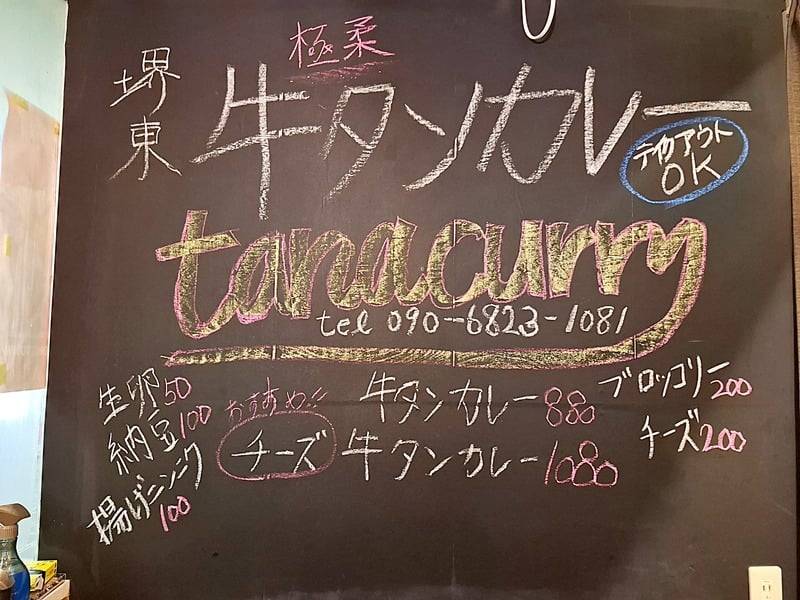 極柔
堺東
牛タンカレー
テイクアウト
OK
tanacurry
tel 090-6823-1081
生卵50
納豆100
揚げニンニク
100
おすすめ!!
牛タンカレー880
チーズ牛タンカレー1080
ブロッコリー200
チーズ200